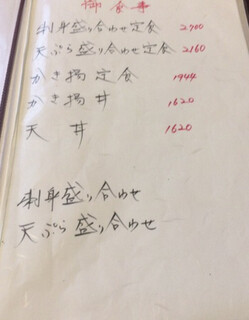 御食事
刺身盛り合わせ定食 2700
天ぷら盛り合わせ定食 2160
かき揚定食 1944
かき揚丼 1620
天丼 1620
刺身盛り合わせ
天ぷら盛り合わせ